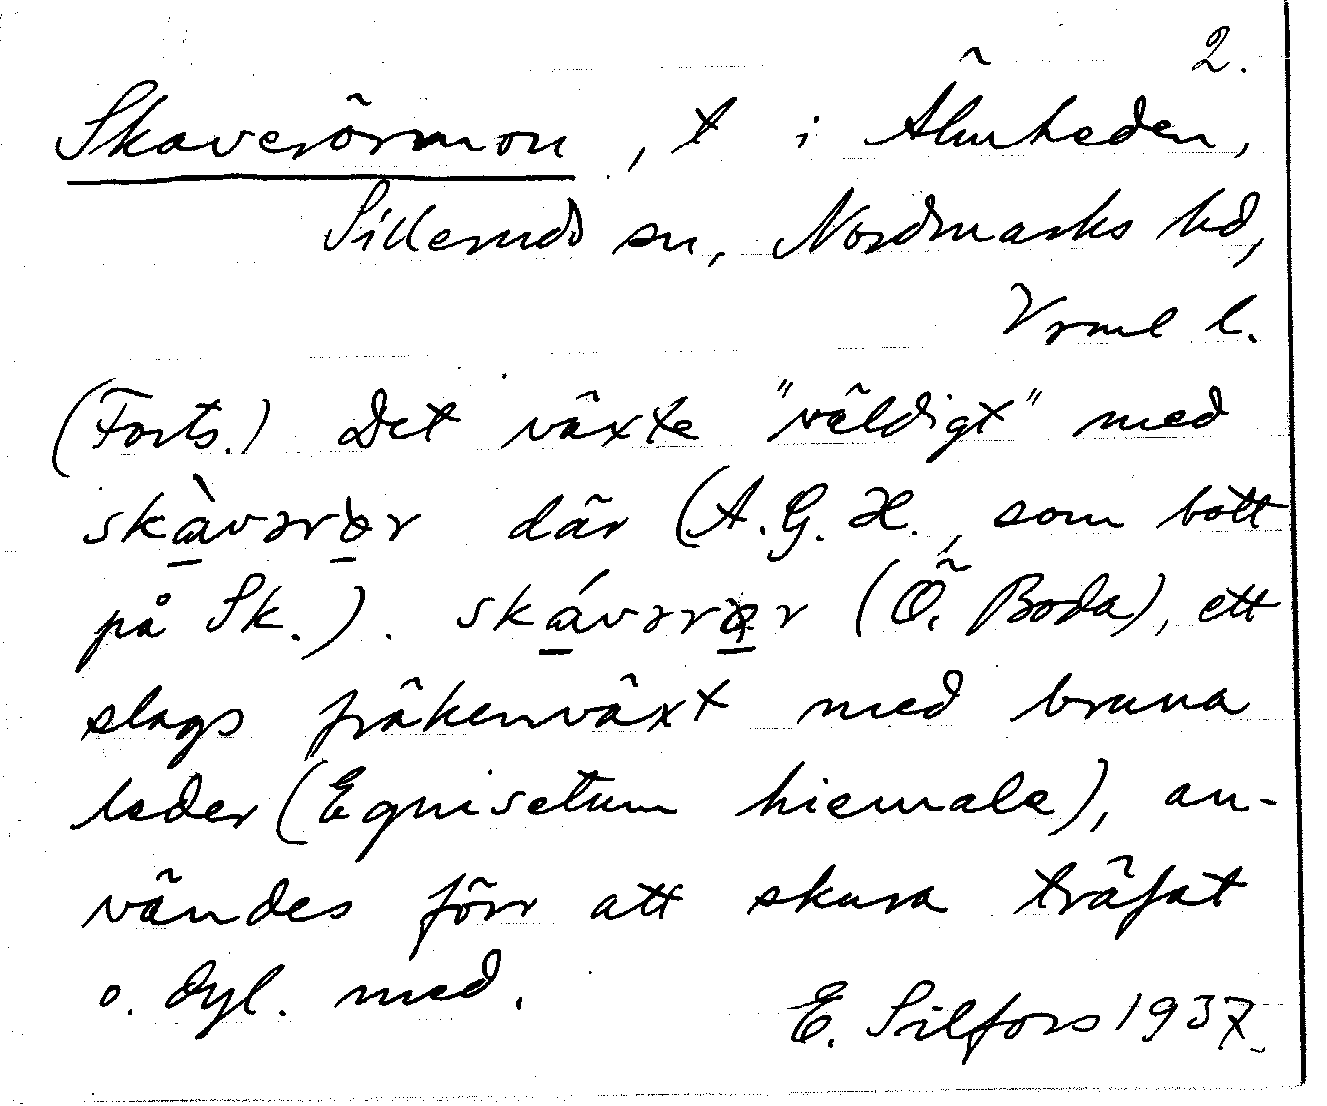 2.
Skaverörmon, t i Älmheden,
Sillerud sn, Nordmarks hd,
Vrml l.
(Forts.) Det växte "väldigt" med
skàvərər där (A. G. H., som bott
på Sk.). skávərər (Ö. Boda), ett
slags fräkenväxt med bruna
leder (Equisetum hiemale), an-
vändes förr att skura träfat
o. dyl. med.
E. Silfors 1937.